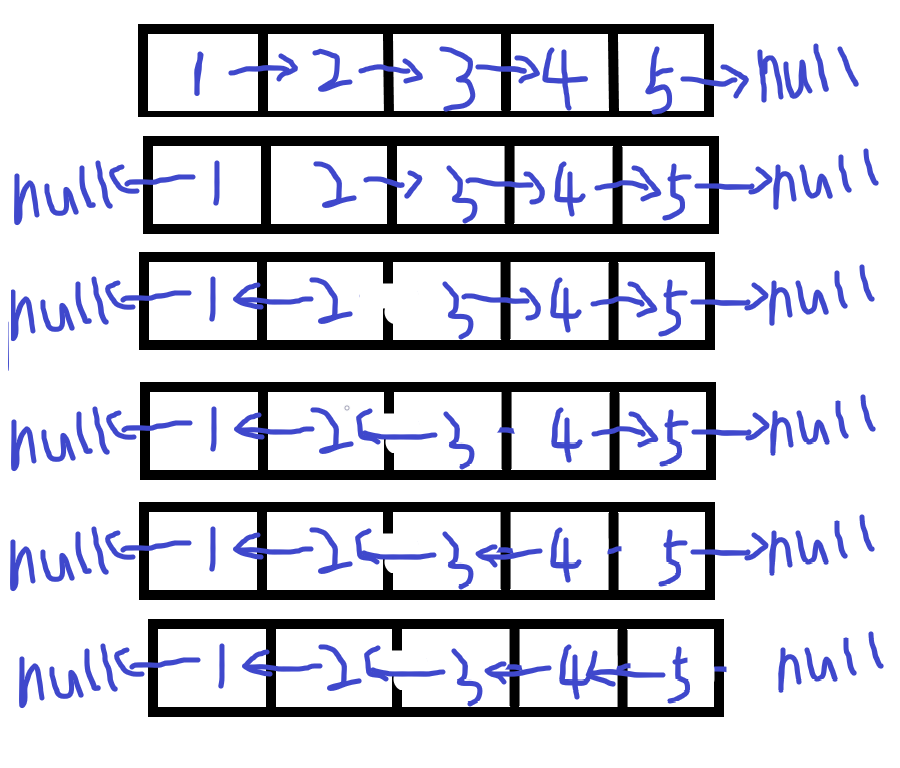 1 → 2 → 3 → 4 → 5 → null
null ← 1 2 → 3 → 4 → 5 → null
null ← 1 ← 2 3 → 4 → 5 → null
null ← 1 ← 2 ← 3 4 → 5 → null
null ← 1 ← 2 ← 3 ← 4 5 → null
null ← 1 ← 2 ← 3 ← 4 ← 5 null